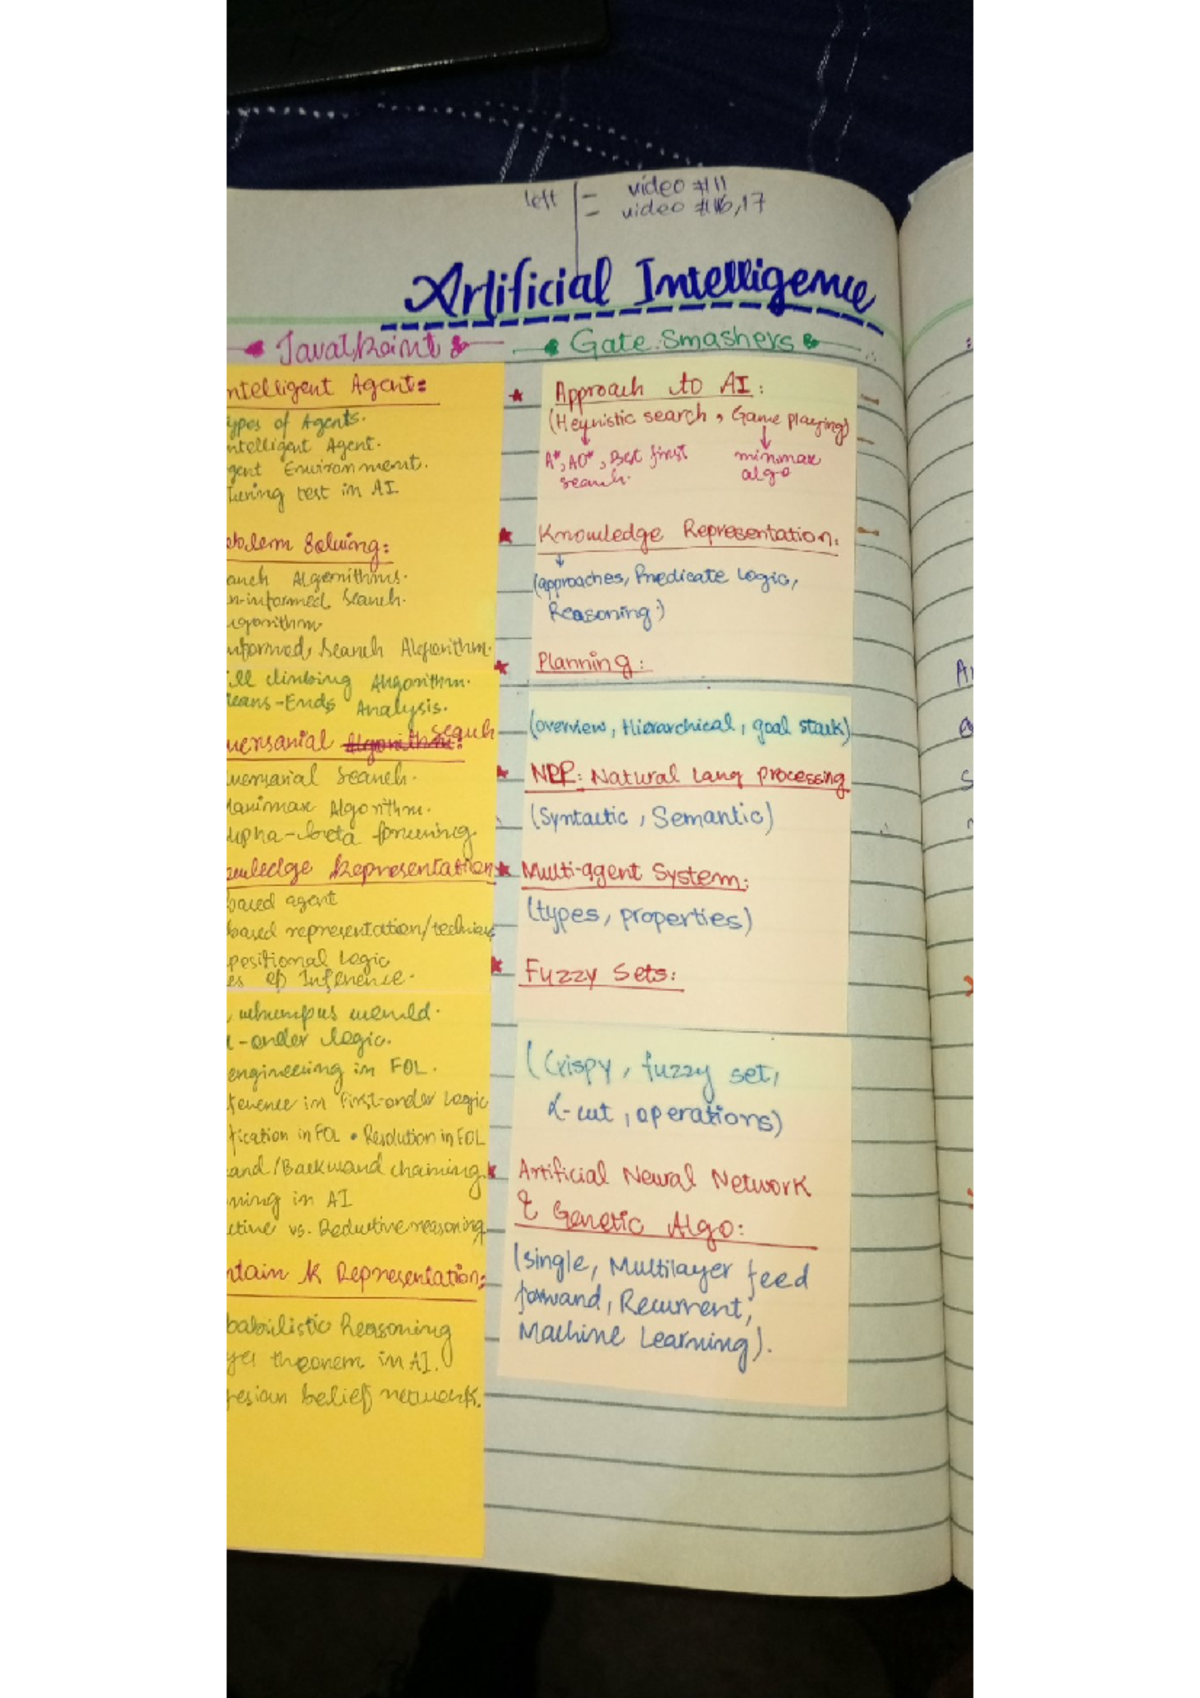 left - video #11
- video #16,17
Artificial Intelligence
JavaTPoint
ntelligent Agent:
ypes of Agents.
ntelligent Agent.
gent Environment.
Turing test in AI
oblem Solving:
earch Algorithms.
n-informed Search.
lgorithm
nformed Search Algorithm.
ill climbing Algorithm.
eans-Ends Analysis.
versarial Search
versarial Search.
Minimax Algorithm.
Alpha-beta
owledge Representation
based agent
based representation/technique
positional Logic
es of Inference.
whumpus world.
t-order logic.
engineering in FOL.
ference in First-order Logic
fication in FOL • Resolution in FOL
ward/Backward chaining
ning in AI
ctive vs. Deductive reasoning
rtain K Representation:
babilistic Reasoning
yes theorem in AI.
yesian belief network.
Gate Smashers
Approach to AI:
(Heuristic search, Game playing)
A*, AO*, Best first search.
minimax algo
Knowledge Representation:
(approaches, Predicate Logic,
Reasoning)
Planning:
(overview, Hierarchical, goal stack)
NLP: Natural Lang processing
(Syntactic, Semantic)
Multi-agent System:
(types, properties)
Fuzzy Sets:
(Crispy, fuzzy set,
α-cut, operations)
Artificial Neural Network
& Genetic Algo:
(single, Multilayer feed
forward, Recurrent,
Machine Learning).